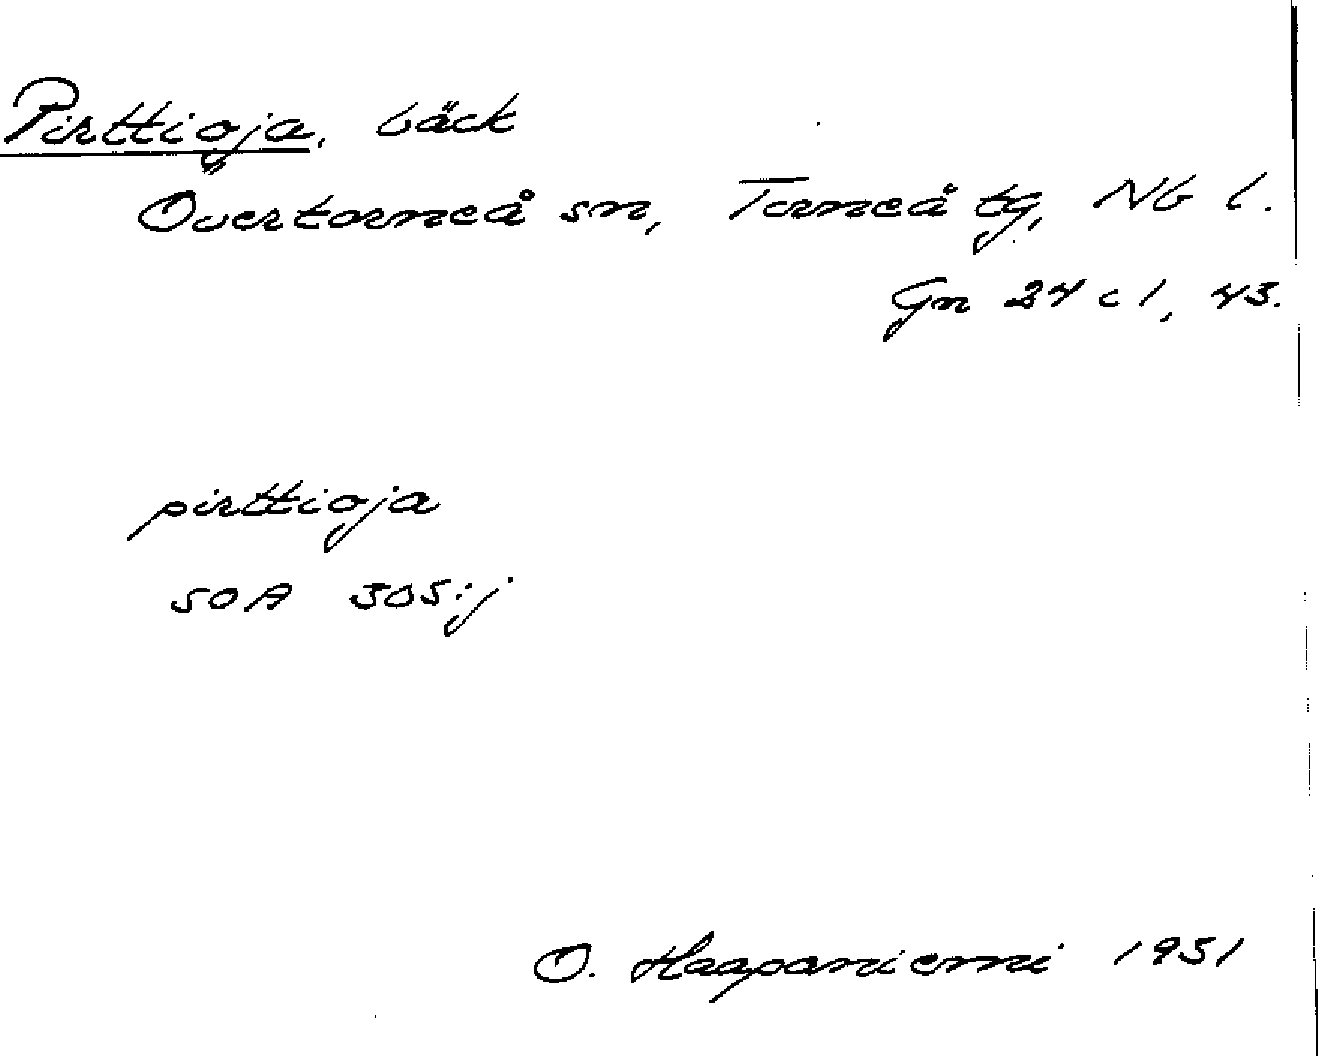 Pirttioja, bäck
Övertorneå sn, Torneå tg, Nb l.
Gn 24 c 1, 43.
pirttioja
SOA 305:j
O. Haapaniemi 1951